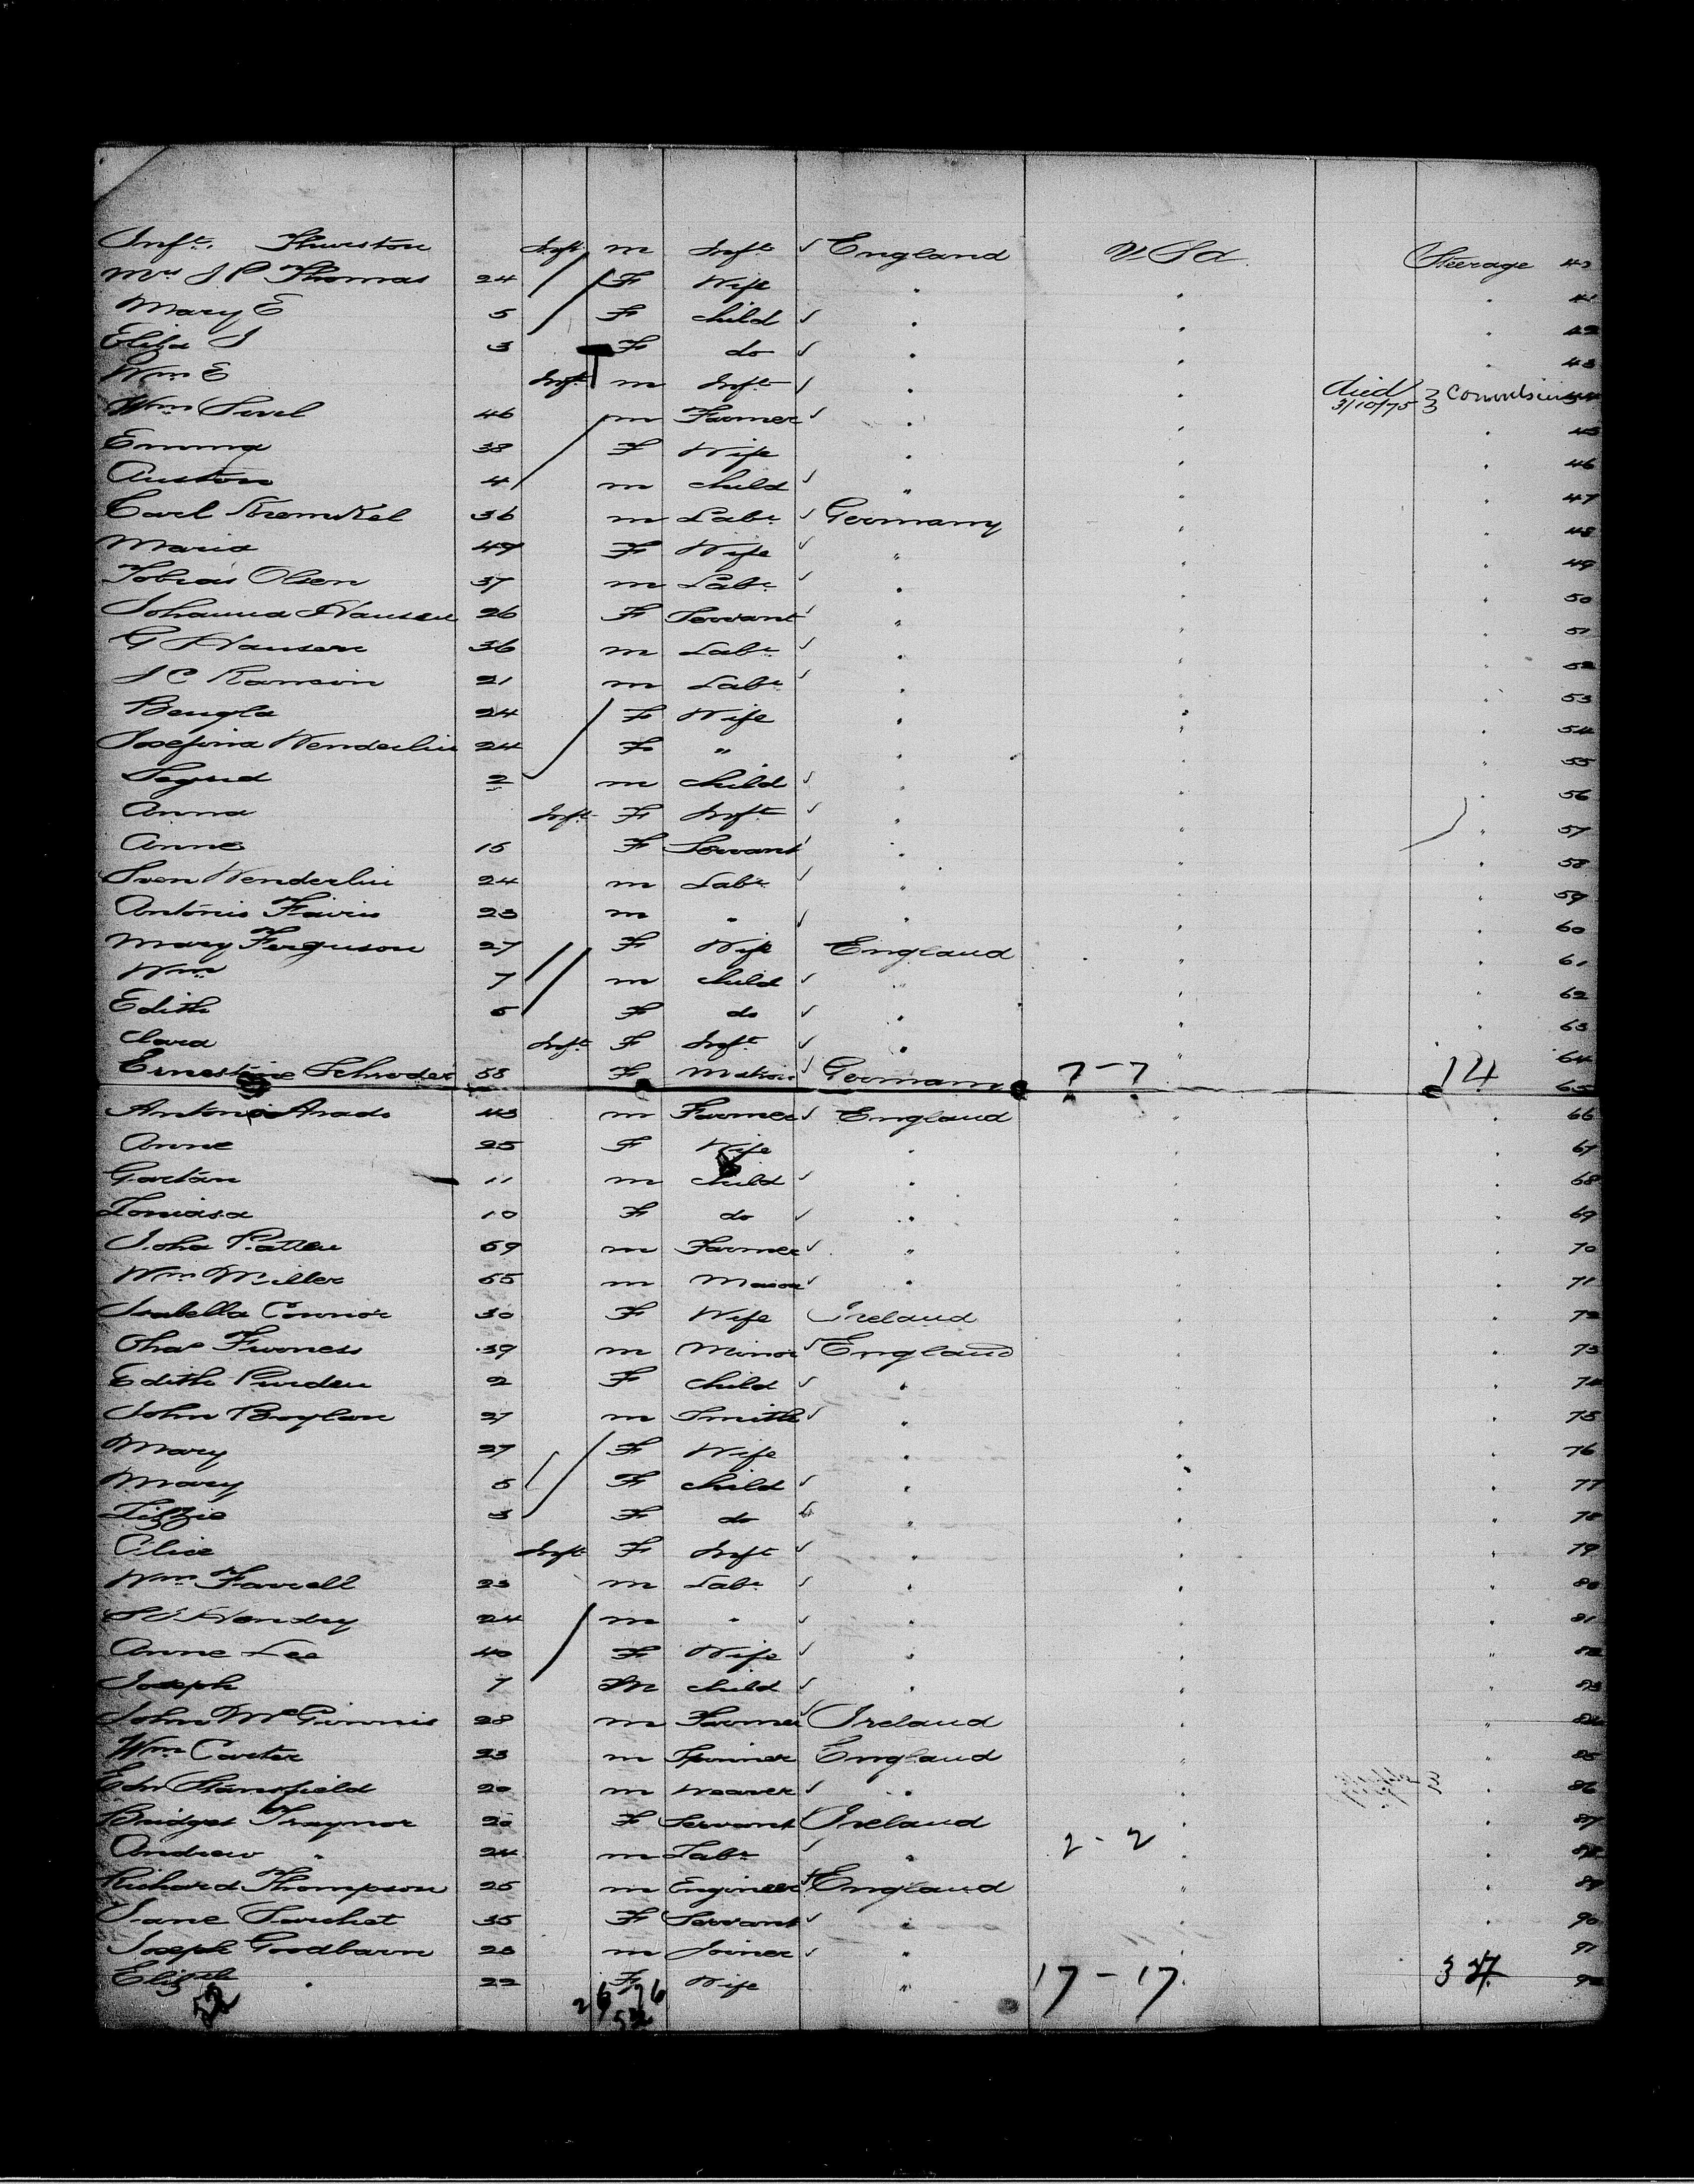 Inft. Thurston Inft m Inft ✓ England U.S.A. Steerage 40
Mrs J P Thomas 24 F Wife " " " 41
Mary E 5 F child ✓ " " " 42
Eliza J 3 F do ✓ " " " 43
Wm E Inft m Inft ✓ " " died 3/10/75 } Convulsions 44
Wm 46 m Farmer ✓ " " " 45
Emma 38 F Wife " " " 46
Auston 4 m child ✓ " " " 47
Carl 36 m Labr ✓ Germany " " 48
Maria 47 F Wife ✓ " " " 49
Tobias Olsen 37 m Labr ✓ " " " 50
Johanna Hansen 26 F Servant ✓ " " " 51
G Hansen 36 m Labr ✓ " " " 52
J C Ranson 21 m Labr ✓ " " " 53
Bengta 24 F Wife " " " 54
Josefina Wenderlin 24 F " " " " 55
Segrid 2 m child ✓ " " " 56
Anna Inft F Inft ✓ " " " 57
Anne 15 F Servant ✓ " " " 58
Sven Wenderlin 24 m Labr ✓ " " " 59
Antonio 23 m " ✓ " " " 60
Mary Ferguson 27 F Wife England " " 61
Wm 7 m child ✓ " " " 62
Edith 5 F do ✓ " " " 63
Clara Inft F Inft ✓ " " " 64
Ernestine Schroder 58 F Matron ✓ Germany 7-7 14 65
Antonio Arado 43 m Farmer ✓ England " " 66
Anne 25 F Wife " " " 67
Gaetan 11 m child ✓ " " " 68
Louiasa 10 F do ✓ " " " 69
John Patten 59 m Farmer ✓ " " " 70
Wm Miller 55 m Mason ✓ " " " 71
Isabella Connor 30 F Wife Ireland " " 72
Chas Furness 39 m Minor ✓ England " " 73
Edith Purden 2 F child ✓ " " " 74
John Boylan 27 m Smith ✓ " " " 75
Mary 27 F Wife " " " 76
Mary 5 F child ✓ " " " 77
Lizzie 3 F do ✓ " " " 78
Alice Inft F Inft ✓ " " " 79
Wm Farrell 23 m Labr ✓ " " " 80
Hendry 24 m " ✓ " " " 81
Anne Lee 40 F Wife ✓ " " " 82
Joseph 7 m child ✓ " " " 83
John McGinnis 28 m Farmer ✓ Ireland " " 84
Wm Carter 23 m Spinner England " " 85
Edw Stansfield 20 m Weaver ✓ " " " 86
Bridget Traynor 20 F Servant ✓ Ireland " " 87
Andrew " 24 m Labr ✓ " 2-2 " " 88
Richard Thompson 25 m Engineer ✓ England " " 89
Jane 35 F Servant ✓ " " " 90
Joseph Goodbarn 23 m Joiner ✓ " " " 91
Elizth " 22 F Wife " 17-17 34 92
52 26 26
52